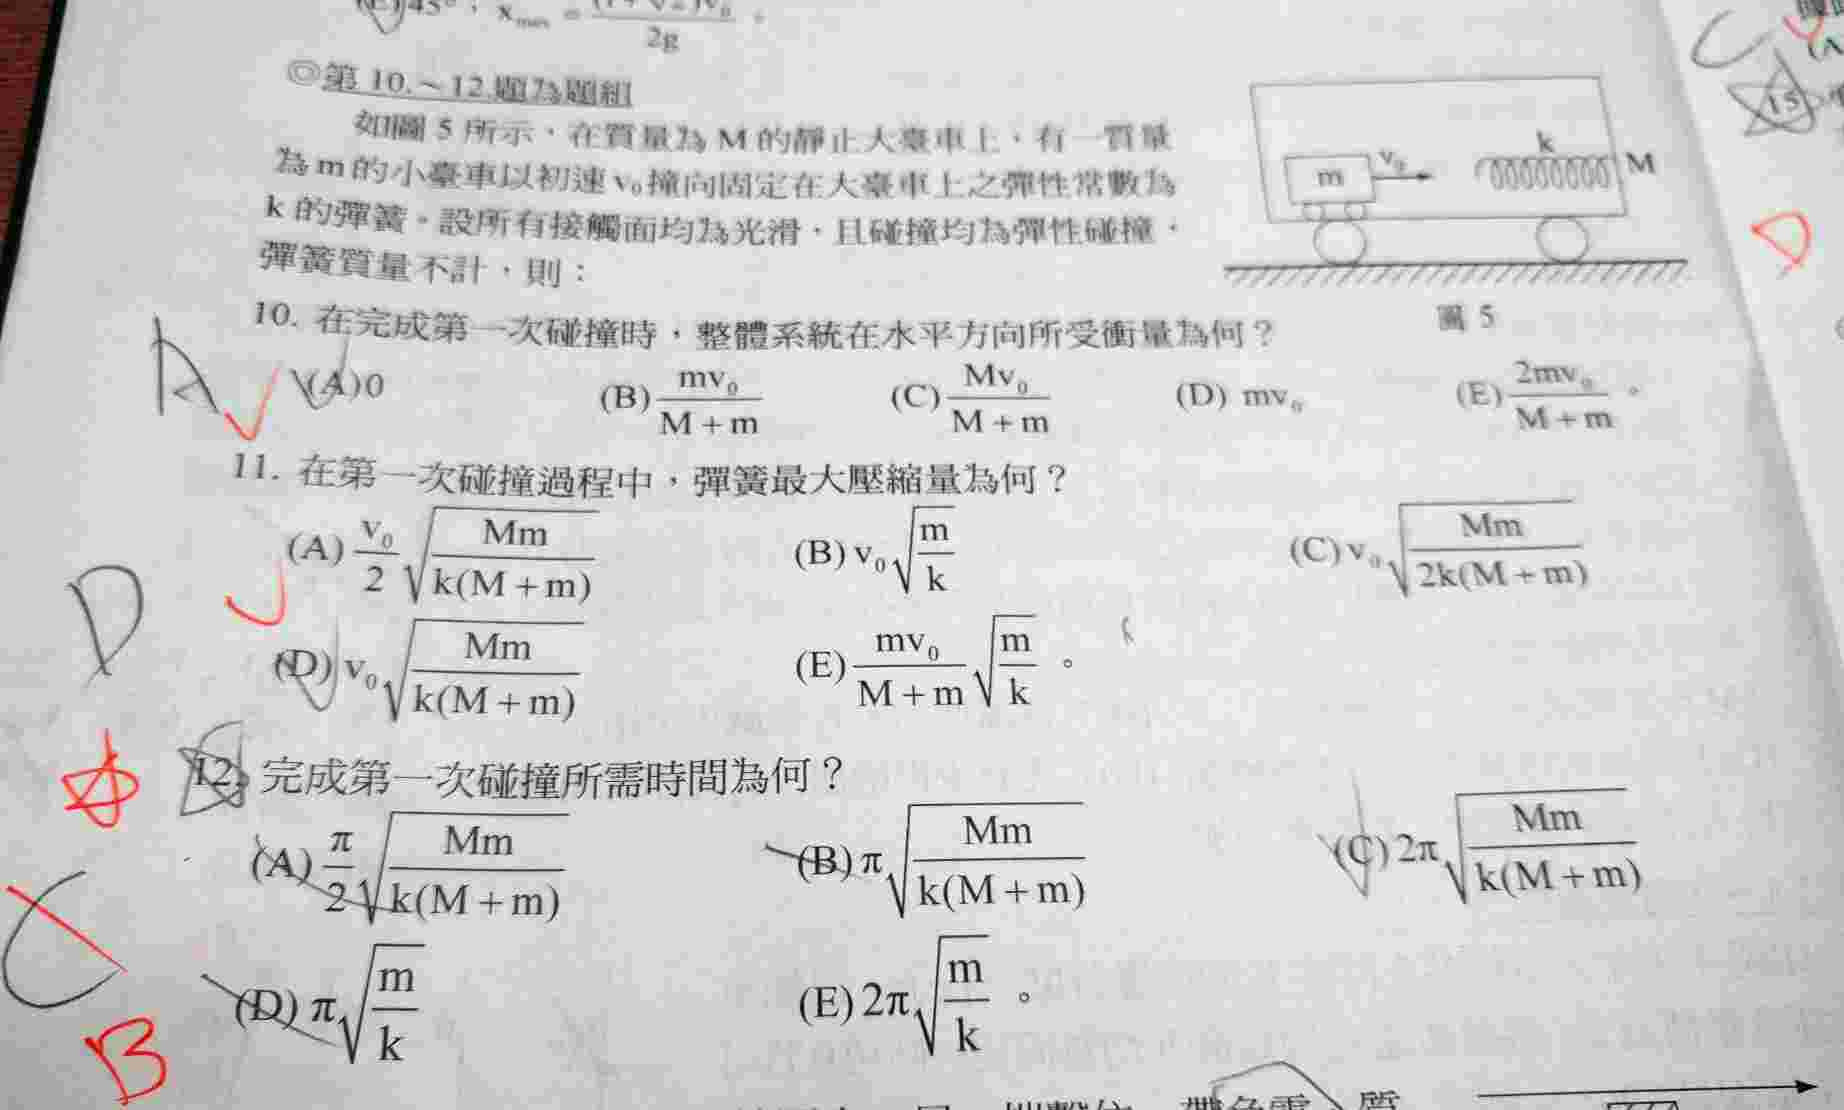 (E)45°，x_max = (1+√2)v₀ / 2g 。
◎第 10.~12.題為題組
如圖 5 所示，在質量為 M 的靜止大臺車上，有一質量
為 m 的小臺車以初速 v₀ 撞向固定在大臺車上之彈性常數為
k 的彈簧。設所有接觸面均為光滑，且碰撞均為彈性碰撞，
彈簧質量不計，則：
m v₀ k M
圖 5
10. 在完成第一次碰撞時，整體系統在水平方向所受衝量為何？
A
(A) 0 (B) mv₀/(M+m) (C) Mv₀/(M+m) (D) mv₀ (E) 2mv₀/(M+m) 。
11. 在第一次碰撞過程中，彈簧最大壓縮量為何？
(A) v₀/2 √(Mm/k(M+m)) (B) v₀ √(m/k) (C) v₀ √(Mm/2k(M+m))
D
(D) v₀ √(Mm/k(M+m)) (E) mv₀/(M+m) √(m/k) 。
12. 完成第一次碰撞所需時間為何？
(A) π/2 √(Mm/k(M+m)) (B) π √(Mm/k(M+m)) (C) 2π √(Mm/k(M+m))
C
(D) π √(m/k) (E) 2π √(m/k) 。
B
C
15
D